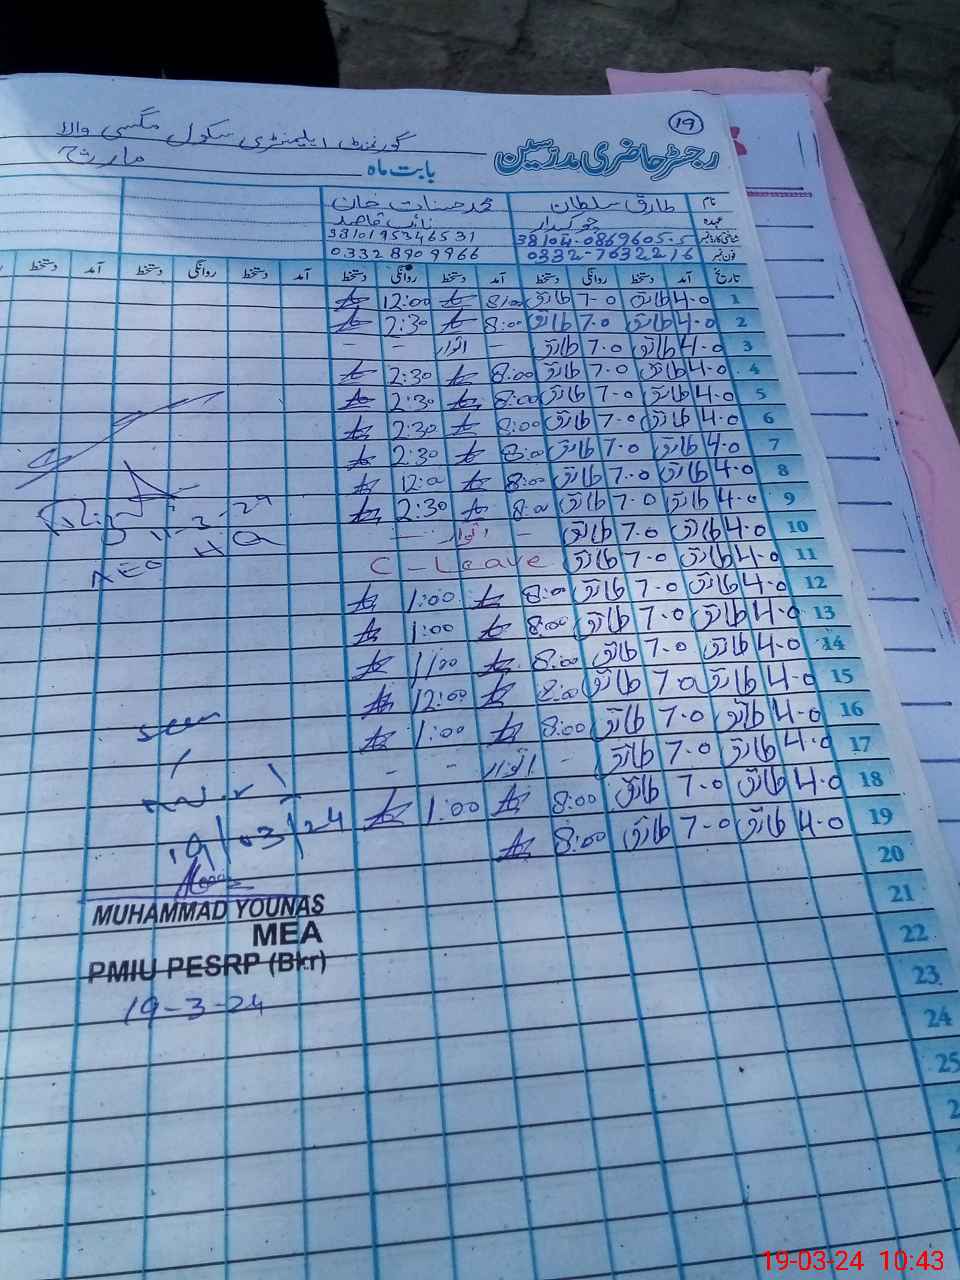 19
رجسٹر حاضری مدرسین گورنمنٹ ایلیمنٹری سکول مگسی والا
بابت ماہ مارچ
نام طارق سلطان محمد حسنات خان
عہدہ چوکیدار نائب قاصد
شناختی کارڈ نمبر 38104-0869605-5 3810195346531
فون نمبر 0332-7632216 03328909966
تاریخ آمد دستخط روانگی دستخط آمد دستخط روانگی دستخط آمد دستخط روانگی دستخط آمد دستخط
1 4.0 طارق 7.0 طارق 8:00 12:00
2 4.0 طارق 7.0 طارق 8:00 2:30
3 4.0 طارق 7.0 طارق - اتوار - -
4 4.0 طارق 7.0 طارق 8:00 2:30
5 4.0 طارق 7.0 طارق 8:00 2:30
6 4.0 طارق 7.0 طارق 8:00 2:30
7 4.0 طارق 7.0 طارق 8:00 2:30
8 4.0 طارق 7.0 طارق 8:00 12:0
9 4.0 طارق 7.0 طارق 8:00 2:30
10 4.0 طارق 7.0 طارق - اتوار -
11 4.0 طارق 7.0 طارق C - Leave
12 4.0 طارق 7.0 طارق 8:00 1:00
13 4.0 طارق 7.0 طارق 8:00 1:00
14 4.0 طارق 7.0 طارق 8:00 1:00
15 4.0 طارق 7.0 طارق 8:00 12:00
16 4.0 طارق 7.0 طارق 8:00 1:00
17 4.0 طارق 7.0 طارق - اتوار - -
18 4.0 طارق 7.0 طارق 8:00 1:00
19 4.0 طارق 7.0 طارق 8:00
20
21
22
23
24
25
2
11-3-24
AEO
seen
19/03/24
MUHAMMAD YOUNAS
MEA
PMIU PESRP (Bkr)
19-3-24
19-03-24 10:43